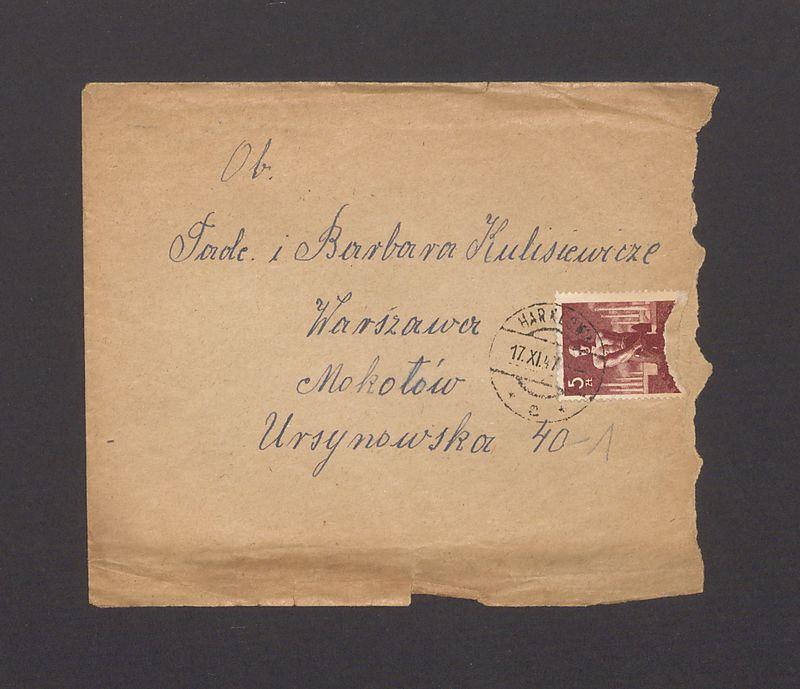 Ob.
Tade. i Barbara Kulisiewicze
Warszawa
Mokotów
Ursynowska 40-1
17.XI.47
e
5 zł